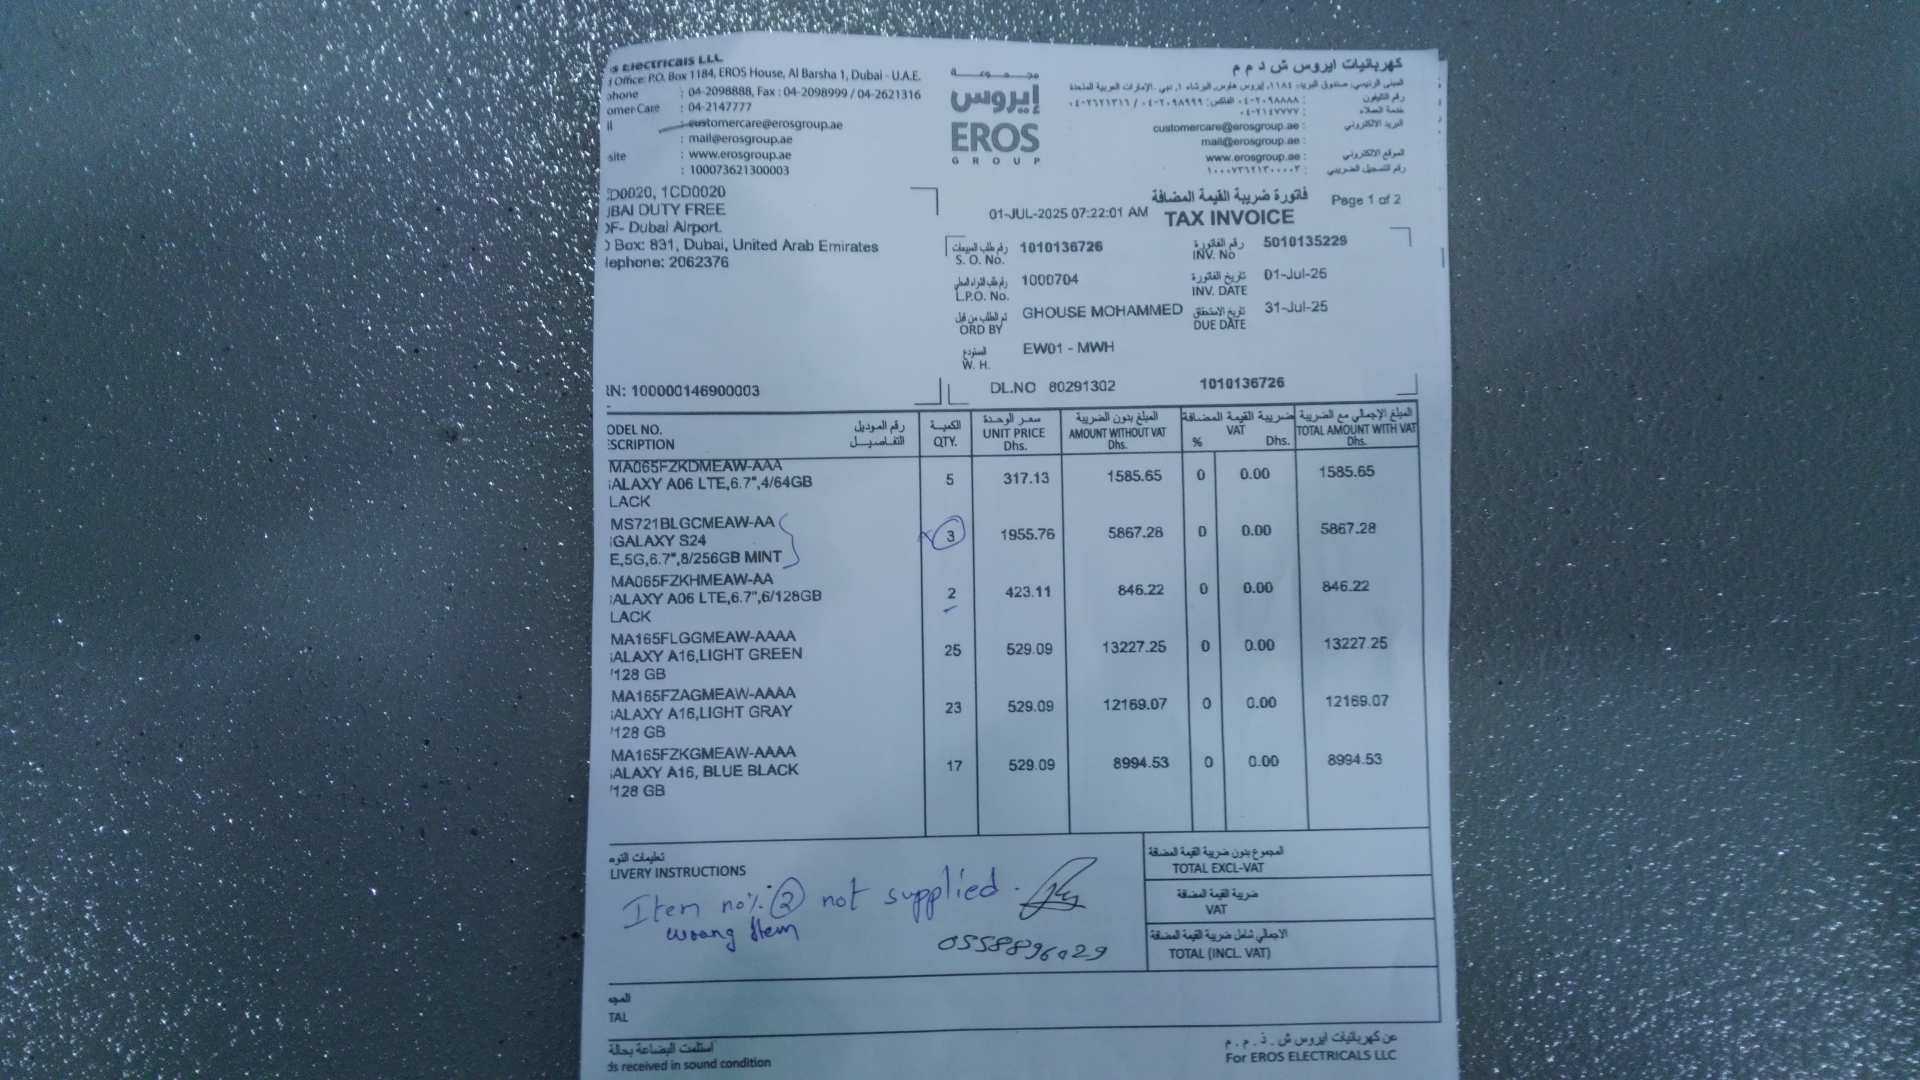 s Electricals LLC
Office: P.O. Box 1184, EROS House, Al Barsha 1, Dubai - U.A.E.
phone : 04-2098888, Fax : 04-2098999 / 04-2621316
omer Care : 04-2147777
: customercare@erosgroup.ae
: mail@erosgroup.ae
site : www.erosgroup.ae
: 100073621300003
مجموعة
إيروس
EROS
GROUP
كهربائيات ايروس ش ذ م م
المبنى الرئيسي: صندوق البريد: ١١٨٤، إيروس هاوس، البرشاء ١، دبي -الإمارات العربية المتحدة
رقم التليفون : ٠٤-٢٠٩٨٨٨٨ الفاكس: ٠٤-٢٠٩٨٩٩٩ / ٠٤-٢٦٢١٣١٦
خدمة العملاء : ٠٤-٢١٤٧٧٧٧
البريد الالكتروني : customercare@erosgroup.ae
: mail@erosgroup.ae
الموقع الالكتروني : www.erosgroup.ae
رقم التسجيل الضريبي : ١٠٠٠٧٣٦٢١٣٠٠٠٠٣
CD0020, 1CD0020
UBAI DUTY FREE
DF- Dubai Airport.
O Box: 831, Dubai, United Arab Emirates
lephone: 2062376
RN: 100000146900003
فاتورة ضريبة القيمة المضافة
Page 1 of 2
01-JUL-2025 07:22:01 AM TAX INVOICE
رقم طلب المبيعات 1010136726 رقم الفاتورة 5010135229
S. O. No. INV. No
رقم طلب الشراء المحلي 1000704 تاريخ الفاتورة 01-Jul-25
L.P.O. No. INV. DATE
تم الطلب من قبل GHOUSE MOHAMMED تاريخ الاستحقاق 31-Jul-25
ORD BY DUE DATE
المستودع EW01 - MWH
W. H.
DL.NO 80291302 1010136726
رقم الموديل الكمية سعر الوحدة المبلغ بدون الضريبة ضريبة القيمة المضافة المبلغ الإجمالي مع الضريبة
ODEL NO. QTY. UNIT PRICE AMOUNT WITHOUT VAT VAT TOTAL AMOUNT WITH VAT
ESCRIPTION التفاصيل Dhs. Dhs. % Dhs. Dhs.
MA065FZKDMEAW-AAA
ALAXY A06 LTE,6.7",4/64GB 5 317.13 1585.65 0 0.00 1585.65
LACK
MS721BLGCMEAW-AA
GALAXY S24 3 1955.76 5867.28 0 0.00 5867.28
E,5G,6.7",8/256GB MINT
MA065FZKHMEAW-AA
ALAXY A06 LTE,6.7",6/128GB 2 423.11 846.22 0 0.00 846.22
LACK
MA165FLGGMEAW-AAAA
ALAXY A16,LIGHT GREEN 25 529.09 13227.25 0 0.00 13227.25
/128 GB
MA165FZAGMEAW-AAAA
ALAXY A16,LIGHT GRAY 23 529.09 12169.07 0 0.00 12169.07
/128 GB
MA165FZKGMEAW-AAAA
ALAXY A16, BLUE BLACK 17 529.09 8994.53 0 0.00 8994.53
/128 GB
تعليمات التو
LIVERY INSTRUCTIONS
Item no: 2 not supplied.
wrong Item
0558896029
المجموع بدون ضريبة القيمة المضافة
TOTAL EXCL-VAT
ضريبة القيمة المضافة
VAT
الاجمالي شامل ضريبة القيمة المضافة
TOTAL (INCL. VAT)
المج
TAL
استلمت البضاعة بحالة
ds received in sound condition
عن كهربائيات ايروس ش . ذ . م . م
For EROS ELECTRICALS LLC